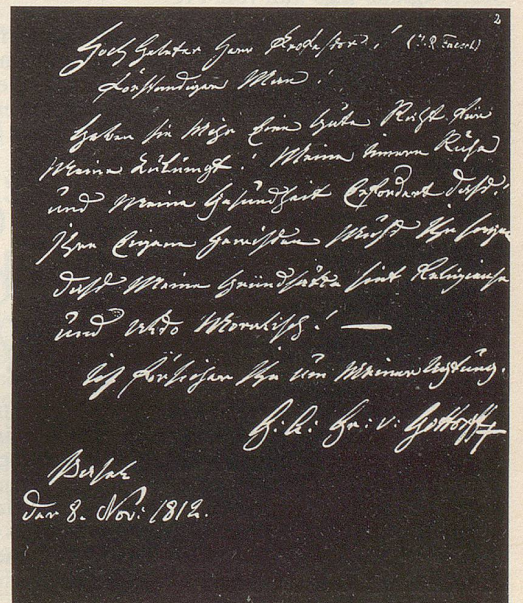 2
Hoch Gelerter Herr Professor! (J. R. Faesch)
Förständiger Man!
Geben sie Mihr Eine Gute Raht für
Meine Zukumft! Meine innere Ruhe
und Meine Gesundheit Erfordert dass!
Ihr Eigene Gewissen Muss Ihn sagen
dass Meine Gründsätze sint Religieuse
und Moralisch! —
Ich försicher Ihn um Meiner Achtung.
G. A. Gr. v. Gottorpp
Basel
den 8. Nov: 1812.